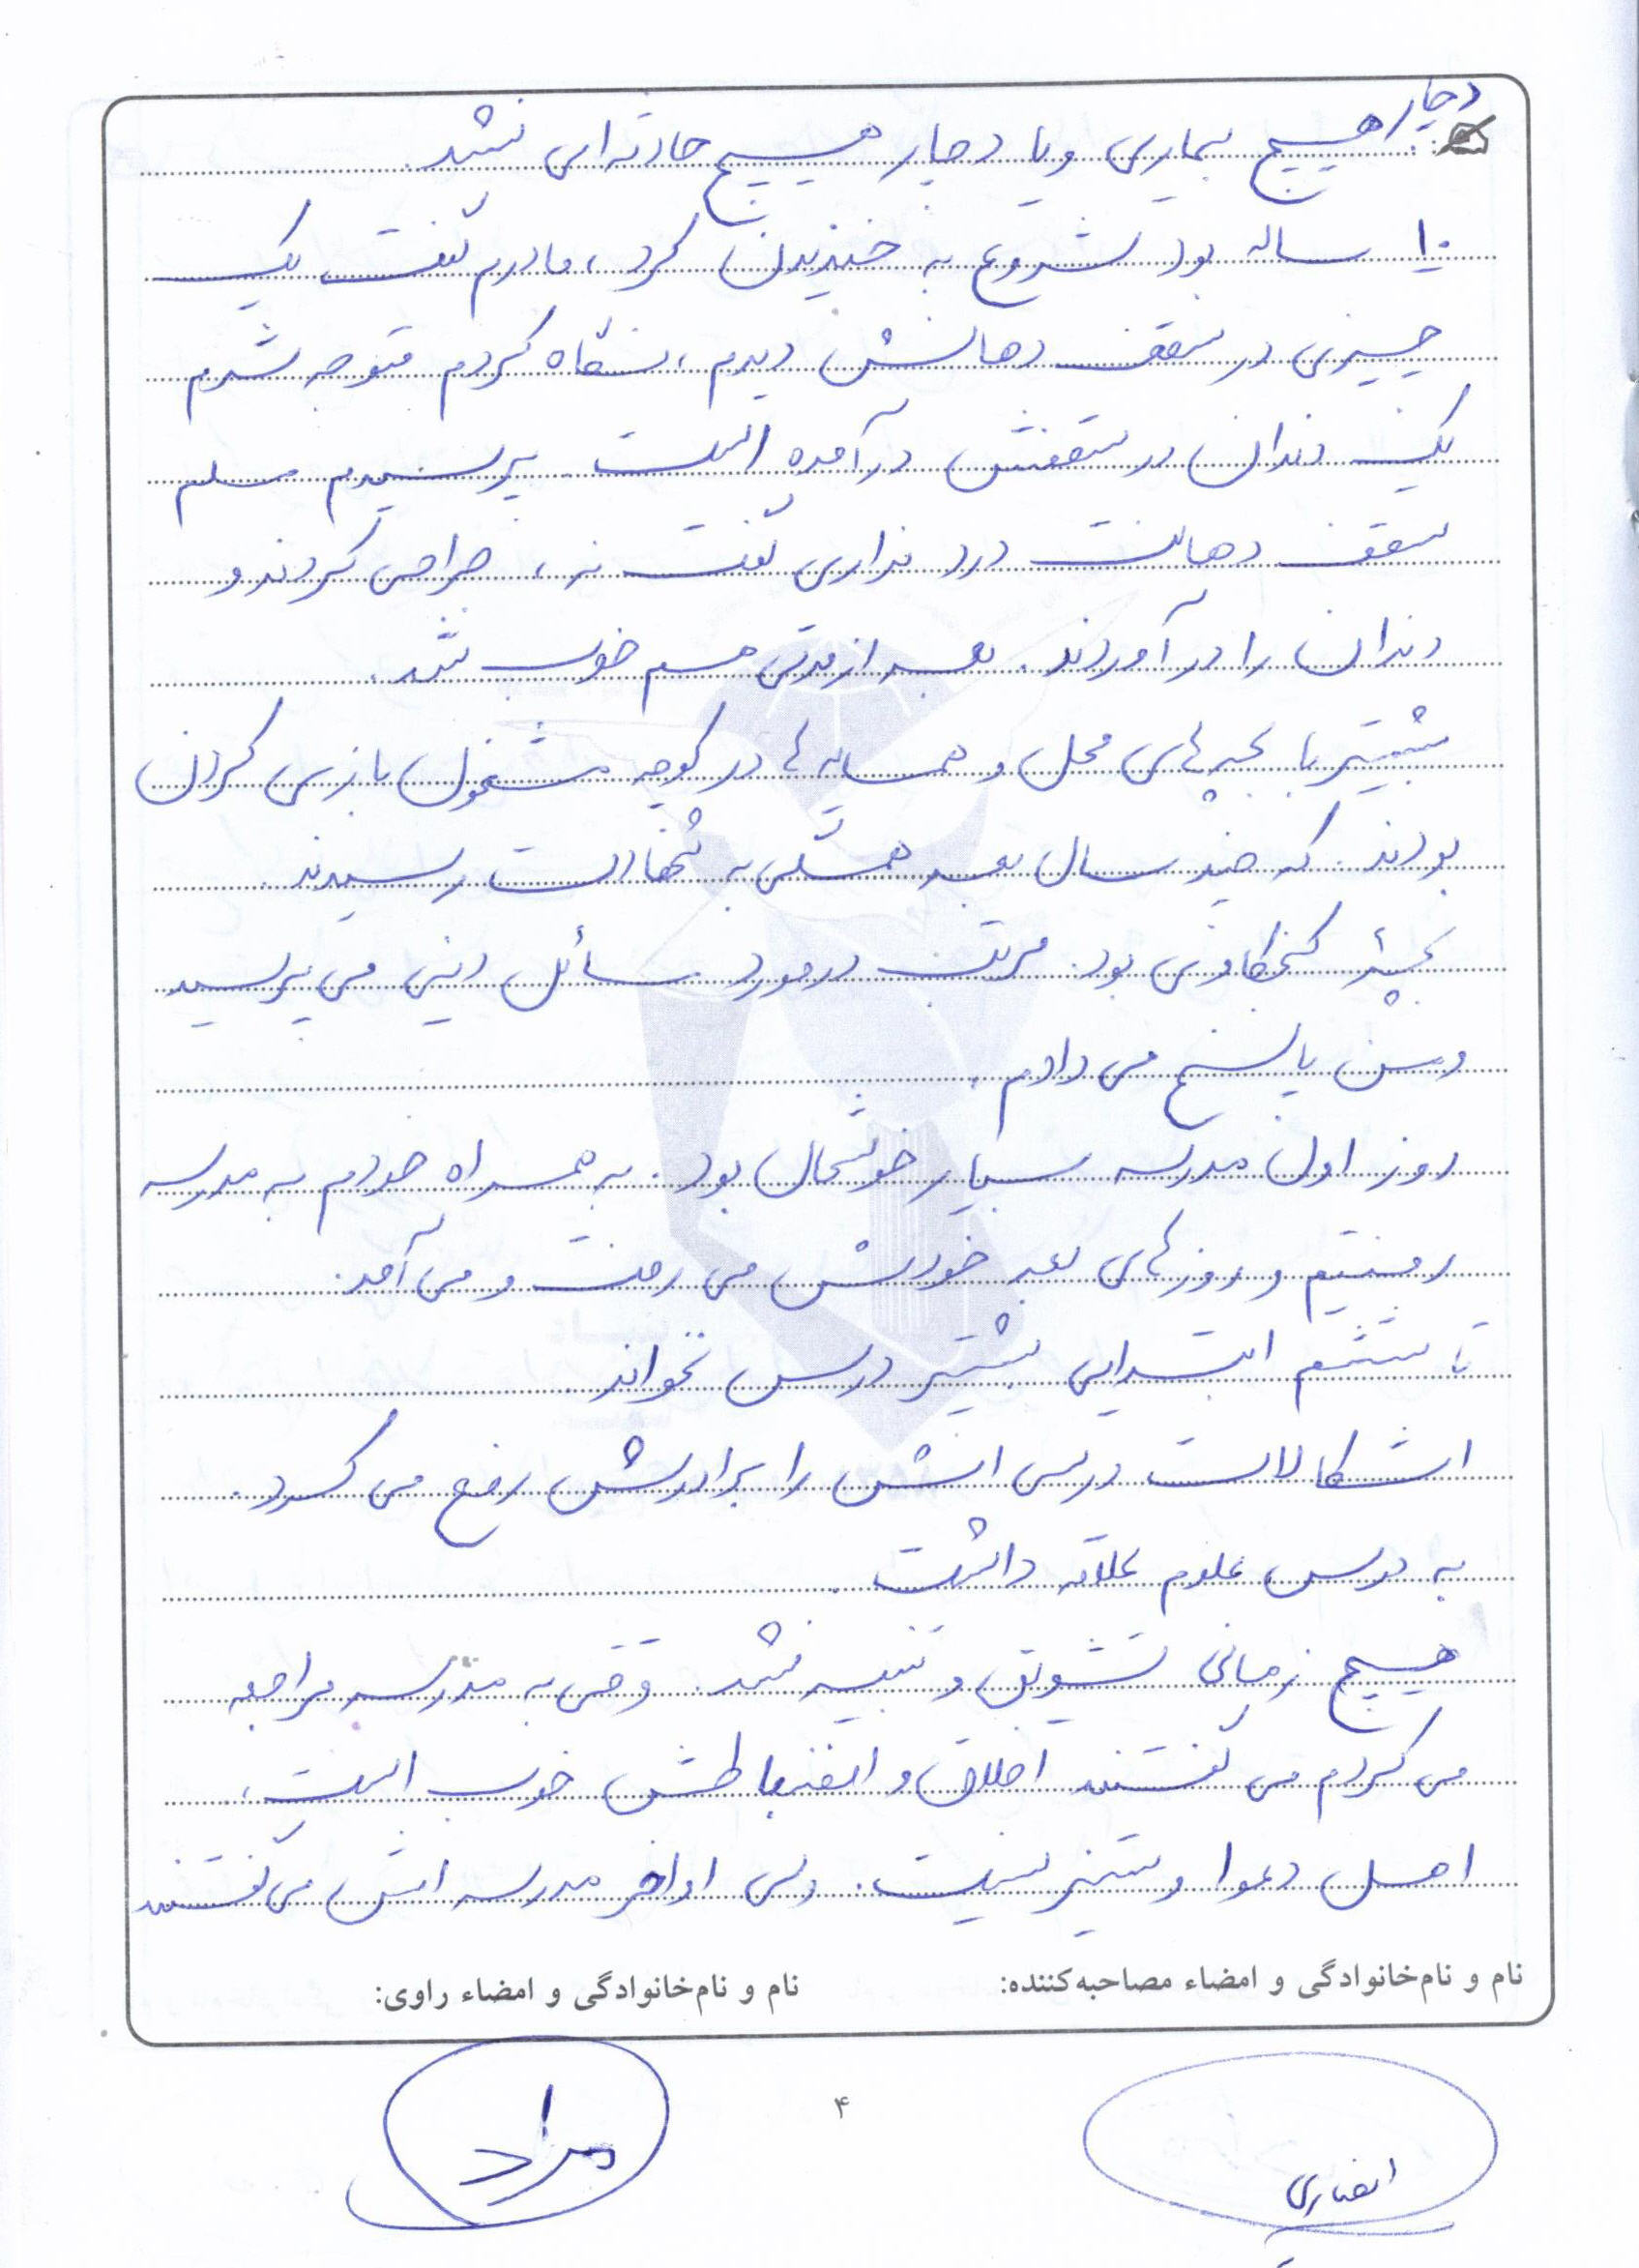 دچار هیچ بیماری و یا دچار هیچ حادثه‌ای نشد.
۱۰ ساله بود شروع به خندیدن کرد، مادرم گفت یک
چیزی در سقف دهانش دیدم، نگاه کردم متوجه شدم
یک دندان در سقفش در آمده است پرسیدم مسلم
سقف دهانت درد نداری گفت نه، جراحی کردند و
دندان را در آوردند. بعد از مدتی هم خوب شد.
بیشتر با بچه‌های محل و همسایه‌ها در کوچه مشغول بازی کردن
بودند که چند سال بعد همگی به شهادت رسیدند.
بچۀ کنجکاوی بود. مرتب در مورد مسائل دینی می‌پرسید
و من پاسخ می‌دادم.
روز اول مدرسه بسیار خوشحال بود. به همراه خودم به مدرسه
رفتیم و روزهای بعد خودش می‌رفت و می‌آمد.
تا ششم ابتدایی بیشتر درس نخواند
اشکالات درسی‌اش را برادرش رفع می‌کرد.
به درس علوم علاقه داشت.
هیچ زمانی تشویق و تنبیه نشد. وقتی به مدرسه مراجعه
می‌کردم می‌گفتند اخلاق و انضباطش خوب است،
اهل دعوا و ستیز نیست. ولی اواخر مدرسه‌اش می‌گفتند
نام و نام‌خانوادگی و امضاء مصاحبه‌کننده:
نام و نام‌خانوادگی و امضاء راوی:
انصاری
۴
مراد